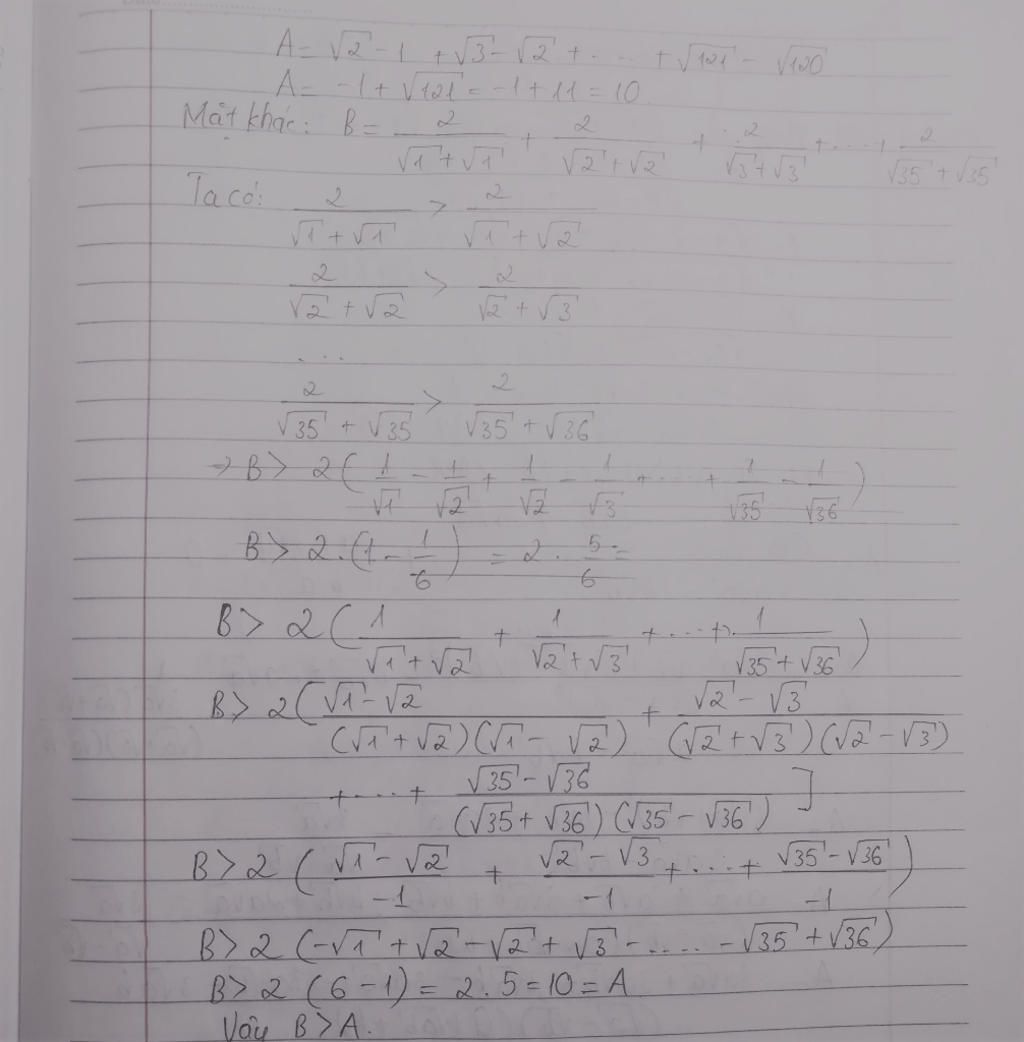 A = √2 - 1 + √3 - √2 + ... + √121 - √120
A = -1 + √121 = -1 + 11 = 10
Mặt khác: B = 2/(√1 + √1) + 2/(√2 + √2) + 2/(√3 + √3) + ... + 2/(√35 + √35)
Ta có: 2/(√1 + √1) > 2/(√1 + √2)
2/(√2 + √2) > 2/(√2 + √3)
...
2/(√35 + √35) > 2/(√35 + √36)
→ B > 2(1/√1 - 1/√2 + 1/√2 - 1/√3 + ... + 1/√35 - 1/√36)
B > 2 . (1 - 1/6) = 2 . 5/6 =
B > 2(1/(√1 + √2) + 1/(√2 + √3) + ... + 1/(√35 + √36))
B > 2((√1 - √2)/((√1 + √2)(√1 - √2)) + (√2 - √3)/((√2 + √3)(√2 - √3))
+ ... + (√35 - √36)/((√35 + √36)(√35 - √36))]
B > 2((√1 - √2)/-1 + (√2 - √3)/-1 + ... + (√35 - √36)/-1)
B > 2(-√1 + √2 - √2 + √3 - .... - √35 + √36)
B > 2(6 - 1) = 2.5 = 10 = A
Vậy B > A.